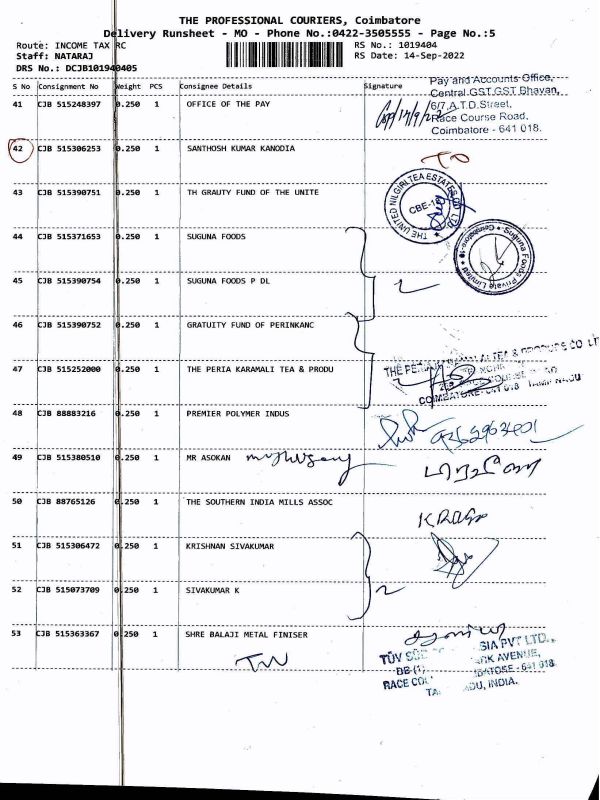 THE PROFESSIONAL COURIERS, Coimbatore
Delivery Runsheet - MO - Phone No.:0422-3505555 - Page No.:5
Route: INCOME TAX RC
RS No.: 1019404
Staff: NATARAJ
RS Date: 14-Sep-2022
DRS No.: DCJB101940405
S No Consignment No Weight PCS Consignee Details Signature
Pay and Accounts Office,
Central GST,GST Bhavan,
6/7,A.T.D.Street,
Race Course Road,
Coimbatore - 641 018.
41 CJB 515248397 0.250 1 OFFICE OF THE PAY
42 CJB 515306253 0.250 1 SANTHOSH KUMAR KANODIA
TO
43 CJB 515390751 0.250 1 TH GRAUTY FUND OF THE UNITE
THE UNITED NILGIRI TEA ESTATES CO. LTD.
CBE-18
44 CJB 515371653 0.250 1 SUGUNA FOODS
Suguna Foods Private Limited
45 CJB 515390754 0.250 1 SUGUNA FOODS P DL
2
46 CJB 515390752 0.250 1 GRATUITY FUND OF PERINKANC
47 CJB 515252000 0.250 1 THE PERIA KARAMALI TEA & PRODU
TEA & PRODUCE CO LT
COIMBATORE-641 018 TAMIL NADU
48 CJB 88883216 0.250 1 PREMIER POLYMER INDUS
49 CJB 515380510 0.250 1 MR ASOKAN
50 CJB 88765126 0.250 1 THE SOUTHERN INDIA MILLS ASSOC
51 CJB 515306472 0.250 1 KRISHNAN SIVAKUMAR
52 CJB 515073709 0.250 1 SIVAKUMAR K
2
53 CJB 515363367 0.250 1 SHRE BALAJI METAL FINISER
TÜV SÜD SIA PVT LTD.,
ARK AVENUE,
RACE CO
INDIA.